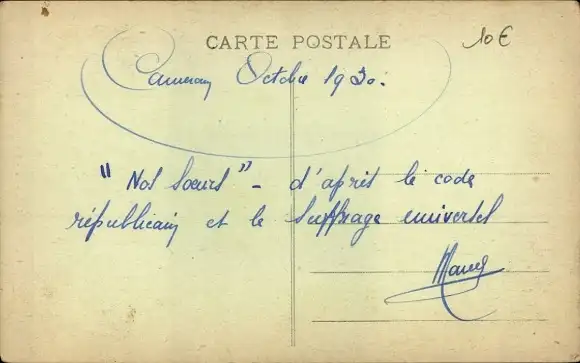 CARTE POSTALE
10 €
Cameroun Octobre 1930.
"Nos Soeurs" - d'après le code
républicain et le Suffrage universel
Marcel